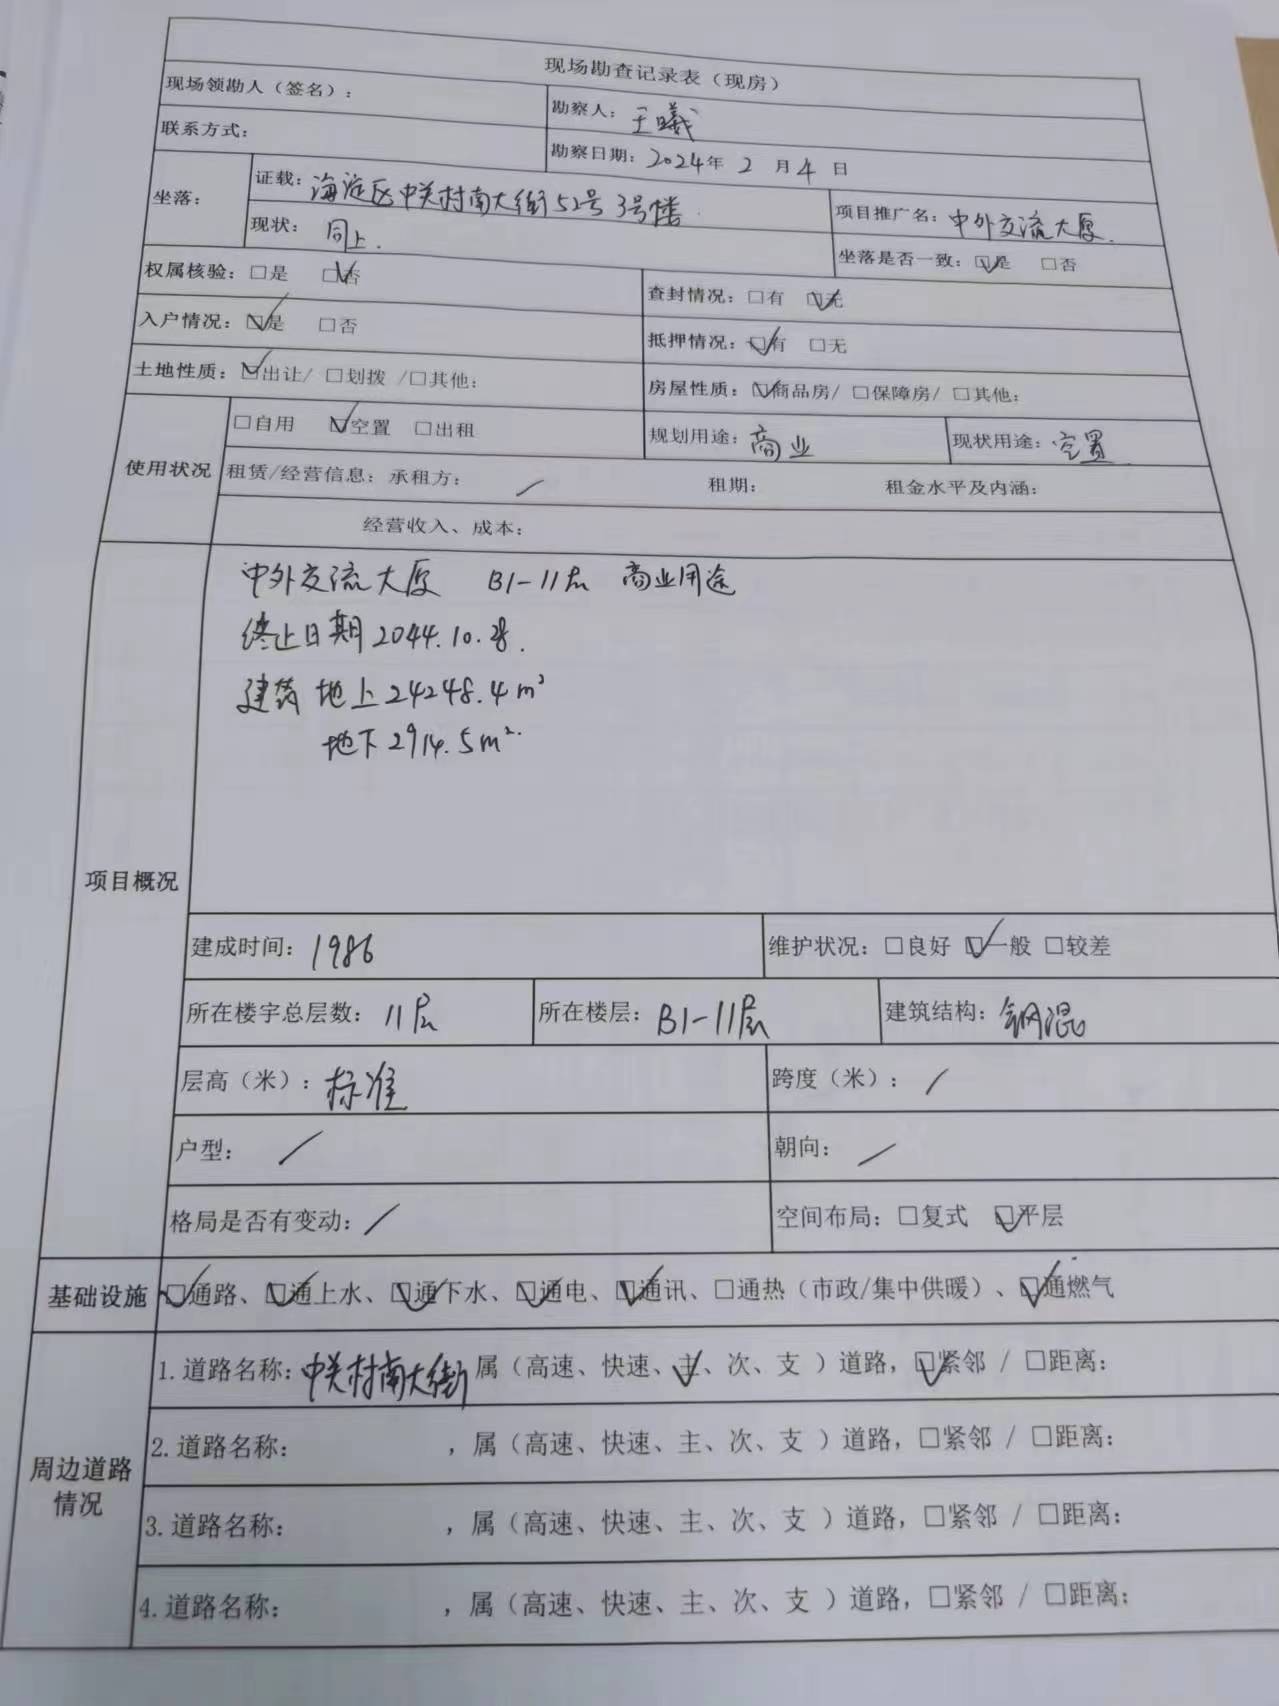 现场勘查记录表（现房）
现场领勘人（签名）： 勘察人：王曦
联系方式： 勘察日期：2024年 2 月 4 日
坐落： 证载：海淀区中关村南大街52号3号楼 项目推广名：中外交流大厦.
现状：同上. 坐落是否一致：☑是 □否
权属核验：□是 ☑否 查封情况：□有 ☑无
入户情况：☑是 □否 抵押情况：☑有 □无
土地性质：☑出让/ □划拨 /□其他： 房屋性质：☑商品房/ □保障房/ □其他：
使用状况 □自用 ☑空置 □出租 规划用途：商业 现状用途：空置
租赁/经营信息：承租方： / 租期： 租金水平及内涵：
经营收入、成本：
项目概况
中外交流大厦 B1-11层 商业用途
终止日期2044.10.28.
建筑 地上24248.4m²
地下2914.5m².
建成时间：1986 维护状况：□良好 ☑一般 □较差
所在楼宇总层数：11层 所在楼层：B1-11层 建筑结构：钢混
层高（米）：标准 跨度（米）：/
户型： / 朝向： /
格局是否有变动：/ 空间布局：□复式 ☑平层
基础设施 ☑通路、☑通上水、☑通下水、☑通电、☑通讯、□通热（市政/集中供暖）、☑通燃气
周边道路情况
1.道路名称：中关村南大街 属（高速、快速、主✓、次、支 ）道路，☑紧邻 / □距离：
2.道路名称： ，属（高速、快速、主、次、支 ）道路，□紧邻 / □距离：
3.道路名称： ，属（高速、快速、主、次、支 ）道路，□紧邻 / □距离：
4.道路名称： ，属（高速、快速、主、次、支 ）道路，□紧邻 / □距离：